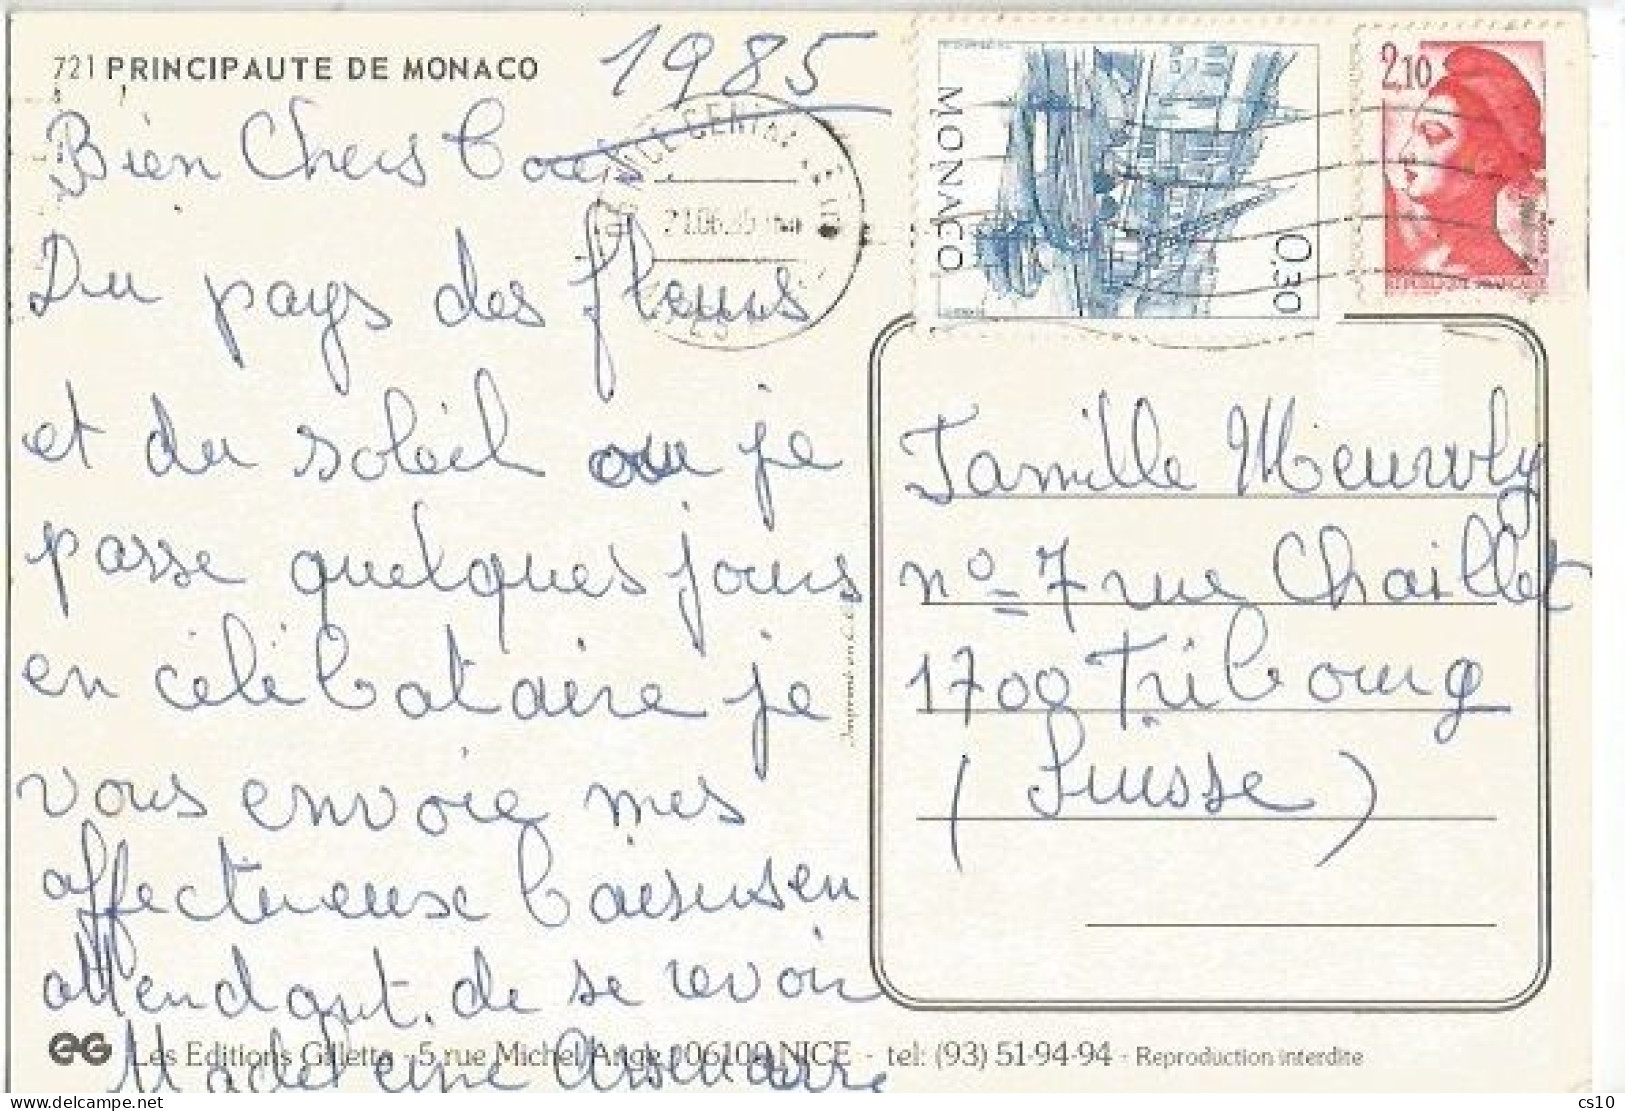 721 PRINCIPAUTE DE MONACO
1985
Bien Chers
Du pays des fleurs
et du soleil ou je
passe quelques jours
en célibataire je
vous envoie mes
affectueuse baisers en
attendant de se revoir
Madeleine
MONACO
0,30
2,10
REPUBLIQUE FRANÇAISE
NICE CENTRALISATEUR
21.06.85
Famille Meuwly
no 7 rue Chaillet
1700 Fribourg
(Suisse)
EG Les Editions Gilletta - 5, rue Michel Ange - 06100 NICE - tel: (93) 51-94-94 - Reproduction interdite
cs10